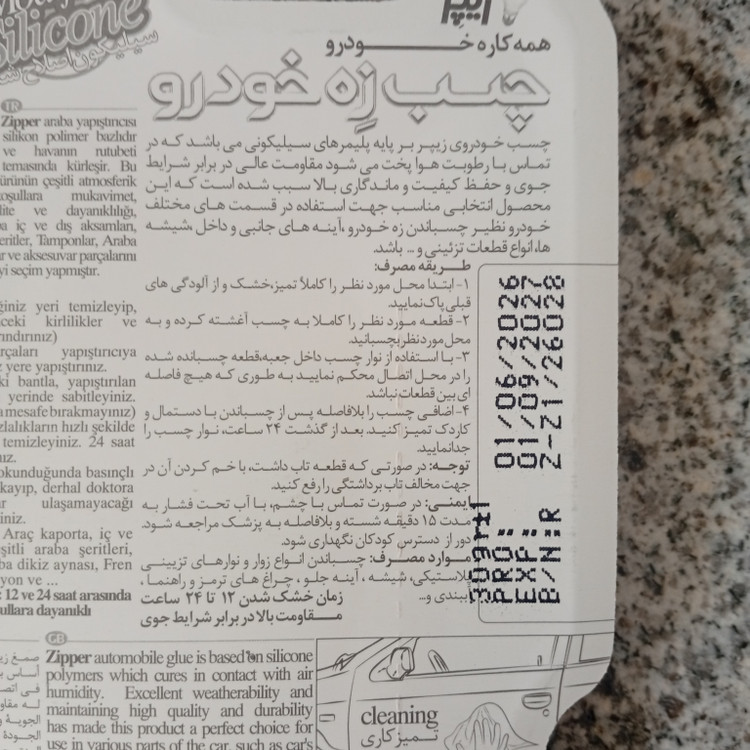 Silicone
همه کاره خودرو
چسب زه خودرو
TR
Zipper araba yapıştırıcısı
silikon polimer bazlıdır
ve havanın rutubeti
temasında kürleşir. Bu
ürünün çeşitli atmosferik
koşullara mukavimet,
lite ve dayanıklılığı,
iç ve dış aksamları,
eritler, Tamponlar, Araba
ar ve aksesuvar parçalarını
yi seçim yapmıştır.
ğiniz yeri temizleyip,
ceki kirlilikler ve
rındırınız)
rçaları yapıştırıcıya
yere yapıştırınız.
ki bantla, yapıştırılan
yerinde sabitleyiniz.
a mesafe bırakmayınız)
zlalıkların hızlı şekilde
temizleyiniz. 24 saat
ız.
okunduğunda basınçlı
kayıp, derhal doktora
ulaşamayacağı
iniz.
Araç kaporta, iç ve
şitli araba şeritleri,
ba dikiz aynası, Fren
yon ve ...
: 12 ve 24 saat arasında
ullara dayanıklı
چسب خودروی زیپر بر پایه پلیمرهای سیلیکونی می باشد که در
تماس با رطوبت هوا پخت می شود مقاومت عالی در برابر شرایط
جوی و حفظ کیفیت و ماندگاری بالا سبب شده است که این
محصول انتخابی مناسب جهت استفاده در قسمت های مختلف
خودرو نظیر چسباندن زه خودرو ،آینه های جانبی و داخل ،شیشه
ها،انواع قطعات تزئینی و ... باشد.
طریقه مصرف:
۱- ابتدا محل مورد نظر را کاملاً تمیز،خشک و از آلودگی های
قبلی پاک نمایید.
۲- قطعه مورد نظر را کاملا به چسب آغشته کرده و به
محل مورد نظر بچسبانید.
۳- با استفاده از نوار چسب داخل جعبه،قطعه چسبانده شده
را در محل اتصال محکم نمایید به طوری که هیچ فاصله
ای بین قطعات نباشد.
۴- اضافی چسب را بلافاصله پس از چسباندن با دستمال و
کاردک تمیز کنید. بعد از گذشت ۲۴ ساعت، نوار چسب را
جدانمایید.
توجه: در صورتی که قطعه تاب داشت، با خم کردن آن در
جهت مخالف تاب برداشتگی را رفع کنید.
ایمنی: در صورت تماس با چشم، با آب تحت فشار به
مدت ۱۵ دقیقه شسته و بلافاصله به پزشک مراجعه شود.
دور از دسترس کودکان نگهداری شود.
موارد مصرف: چسباندن انواع زوار و نوارهای تزیینی
پلاستیکی، شیشه ، آینه جلو ، چراغ های ترمز و راهنما ،
و...
زمان خشک شدن ۱۲ تا ۲۴ ساعت
مقاومت بالا در برابر شرایط جوی
30gr±1
PRO: 01/06/2026
EXP: 01/09/2027
B/N:R 2-Z1/26028
Zipper automobile glue is based on silicone
polymers which cures in contact with air
humidity. Excellent weatherability and
maintaining high quality and durability
has made this product a perfect choice for
use in various parts of the car, such as car's
cleaning
تمیزکاری